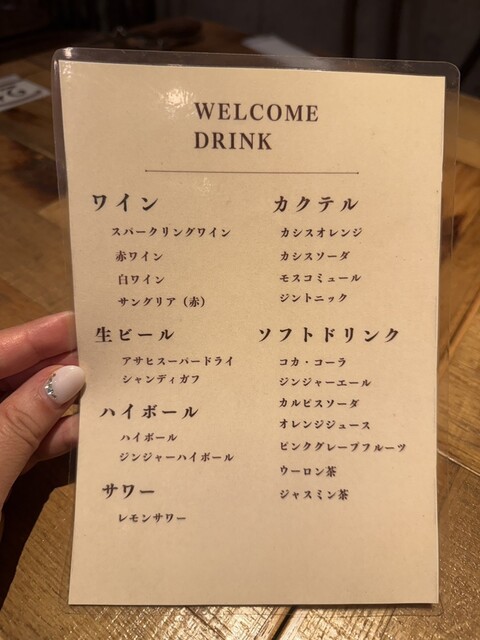 WELCOME
DRINK
ワイン
スパークリングワイン
赤ワイン
白ワイン
サングリア（赤）
生ビール
アサヒスーパードライ
シャンディガフ
ハイボール
ハイボール
ジンジャーハイボール
サワー
レモンサワー
カクテル
カシスオレンジ
カシスソーダ
モスコミュール
ジントニック
ソフトドリンク
コカ・コーラ
ジンジャーエール
カルピスソーダ
オレンジジュース
ピンクグレープフルーツ
ウーロン茶
ジャスミン茶